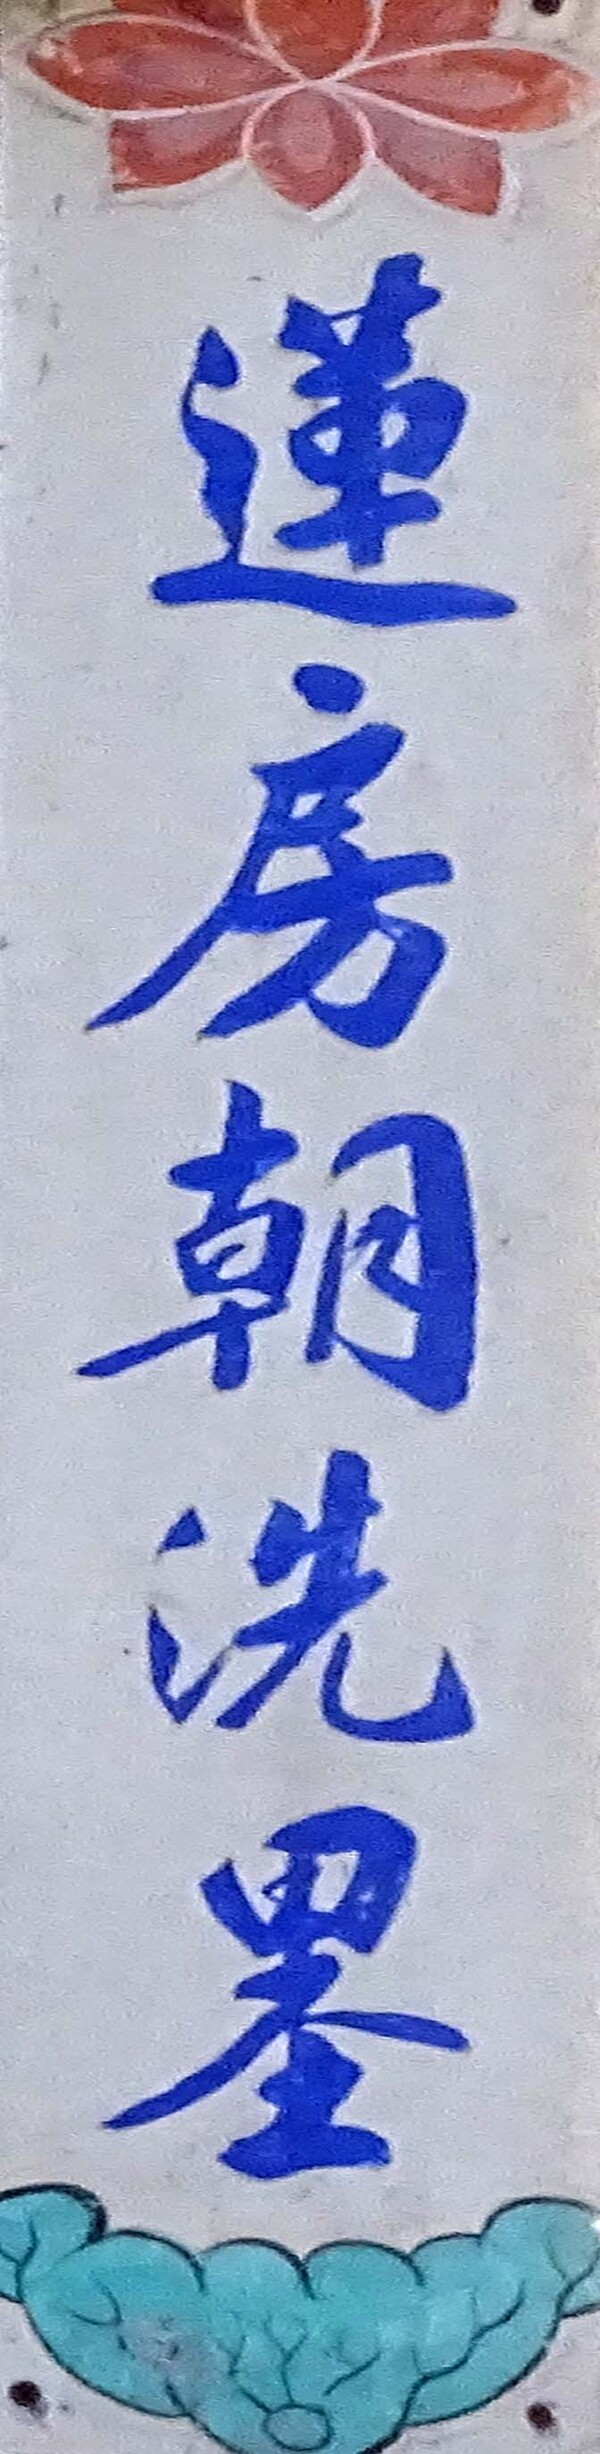 蓮房朝洗墨